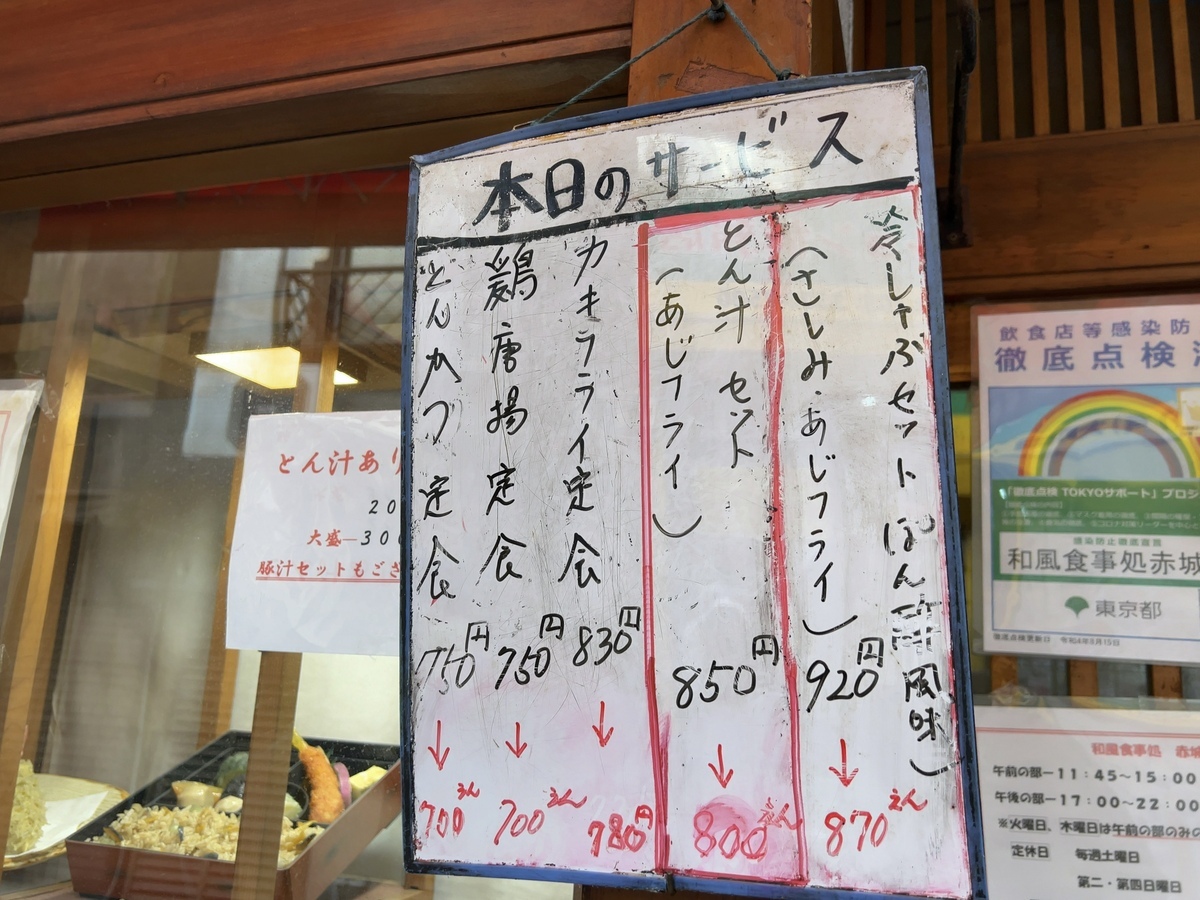 本日のサービス
冷しゃぶセット(ぽん酢風味)
(さしみ・あじフライ)
920円
↓
870えん
とん汁セット
(あじフライ)
850円
↓
800えん
カキフライ定食
830円
↓
780円
鶏唐揚定食
750円
↓
700えん
とんかつ定食
750円
↓
700えん
とん汁あり
大盛—300
豚汁セットもござ
飲食店等感染防
徹底点検
「徹底点検 TOKYOサポート」プロジ
感染防止徹底宣言
和風食事処赤城
東京都
徹底点検更新日 令和4年8月15日
和風食事処 赤城
午前の部－11：45～15：00
午後の部－17：00～22：00
※火曜日、木曜日は午前の部のみの
定休日 毎週土曜日
第二・第四日曜日